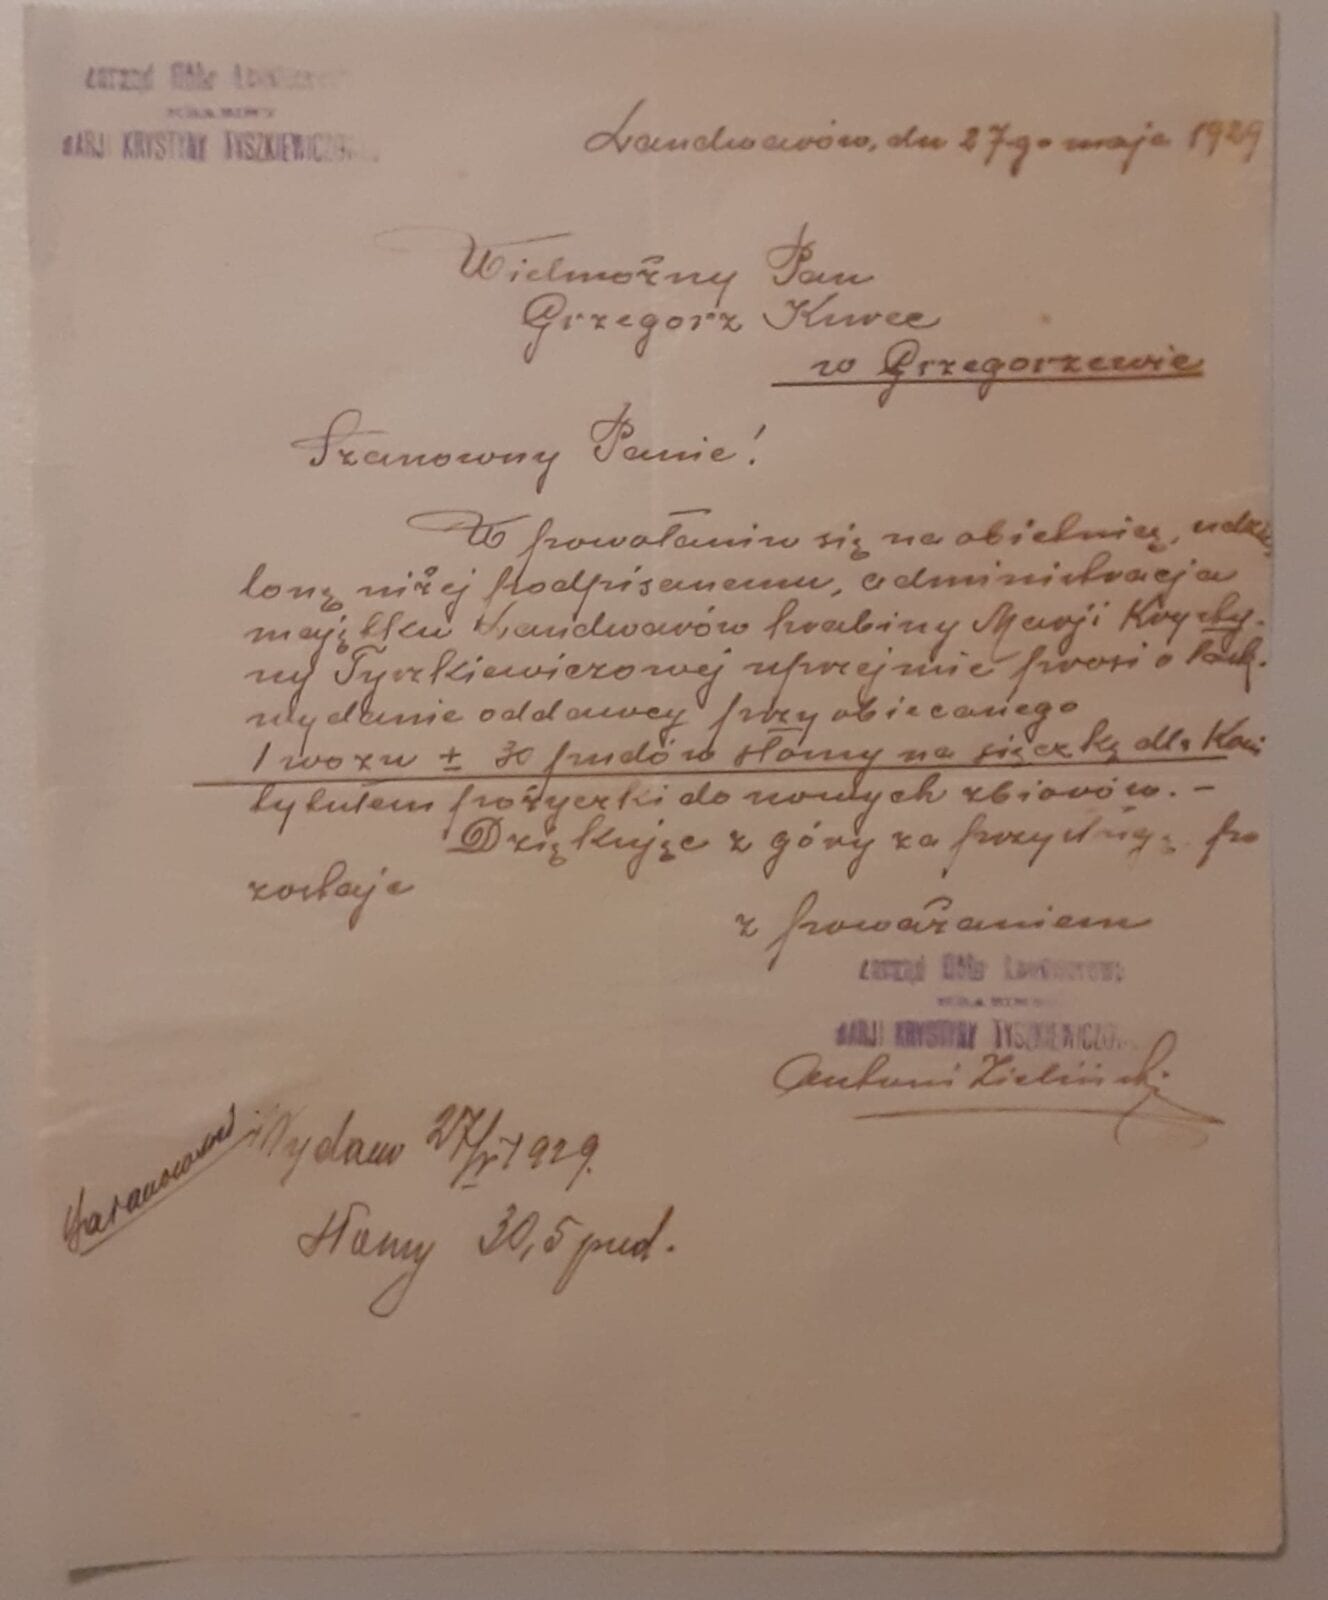 Zarząd Dóbr
HRABINY
MARJI KRYSTYNY TYSZKIEWICZOWEJ
Landwarów, dn 27-go maja 1929
Wielmożny Pan
Grzegorz Kurec
w Grzegorzewie
Szanowny Panie!
W powołaniu się na obietnicę, udzie
loną niżej podpisanemu, administracja
majątku Landwarów hrabiny Marji Krysty-
ny Tyszkiewiczowej uprzejmie prosi o łask.
wydanie oddawcy przyobiecanego
1 wozu ± 30 pudów słomy na sieczkę dla Koni
tytułem pożyczki do nowych zbiorów. -
Dziękując z góry za przysługę po
zostaję
z poważaniem
Zarząd Dóbr Landwarowo
HRABINY
MARJI KRYSTYNY TYSZKIEWICZOWEJ
Antoni Zieliński
Wydano 27/V 1929.
słomy 30,5 pud.